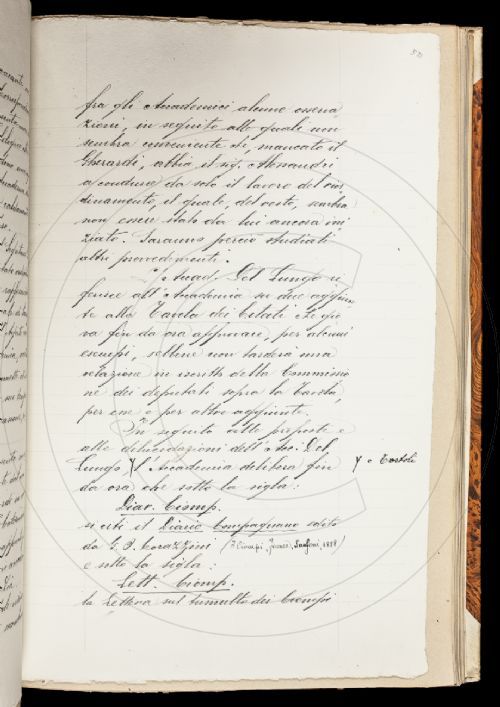 fra gli Accademici alcune osserva
zioni, in seguito alle quali non
sembra conveniente che, mancato il
Gherardi, abbia il sig. Alessandri
a condurre da solo il lavoro del rior
dinamento, il quale, del resto, sembra
non essere stato da lui ancora ini
ziato. Saranno perciò studiati
altri provvedimenti.
L'Accad. Del Lungo ri
ferisce all'Accademia su due aggiun
te alla Tavola dei Citati che gio
va fin da ora approvare, per alcuni
esempi, sebbene non tarderà una
relazione in iscritto della Commissio
ne dei deputati sopra la Tavola,
per esse e per altre aggiunte.
In seguito alle proposte e
alle dilucidazioni dell'Acc. Del
Lungo l'Accademia delibera fin
e Tortoli
da ora che sotto la sigla:
Diar. Comp.
si citi il Diario Compagnano edito
da G. O. Corazzini (I Ciompi, Firenze, Sansoni, 1888)
e sotto la sigla:
Lett. Ciomp.
la Lettera sul tumulto dei Ciompi